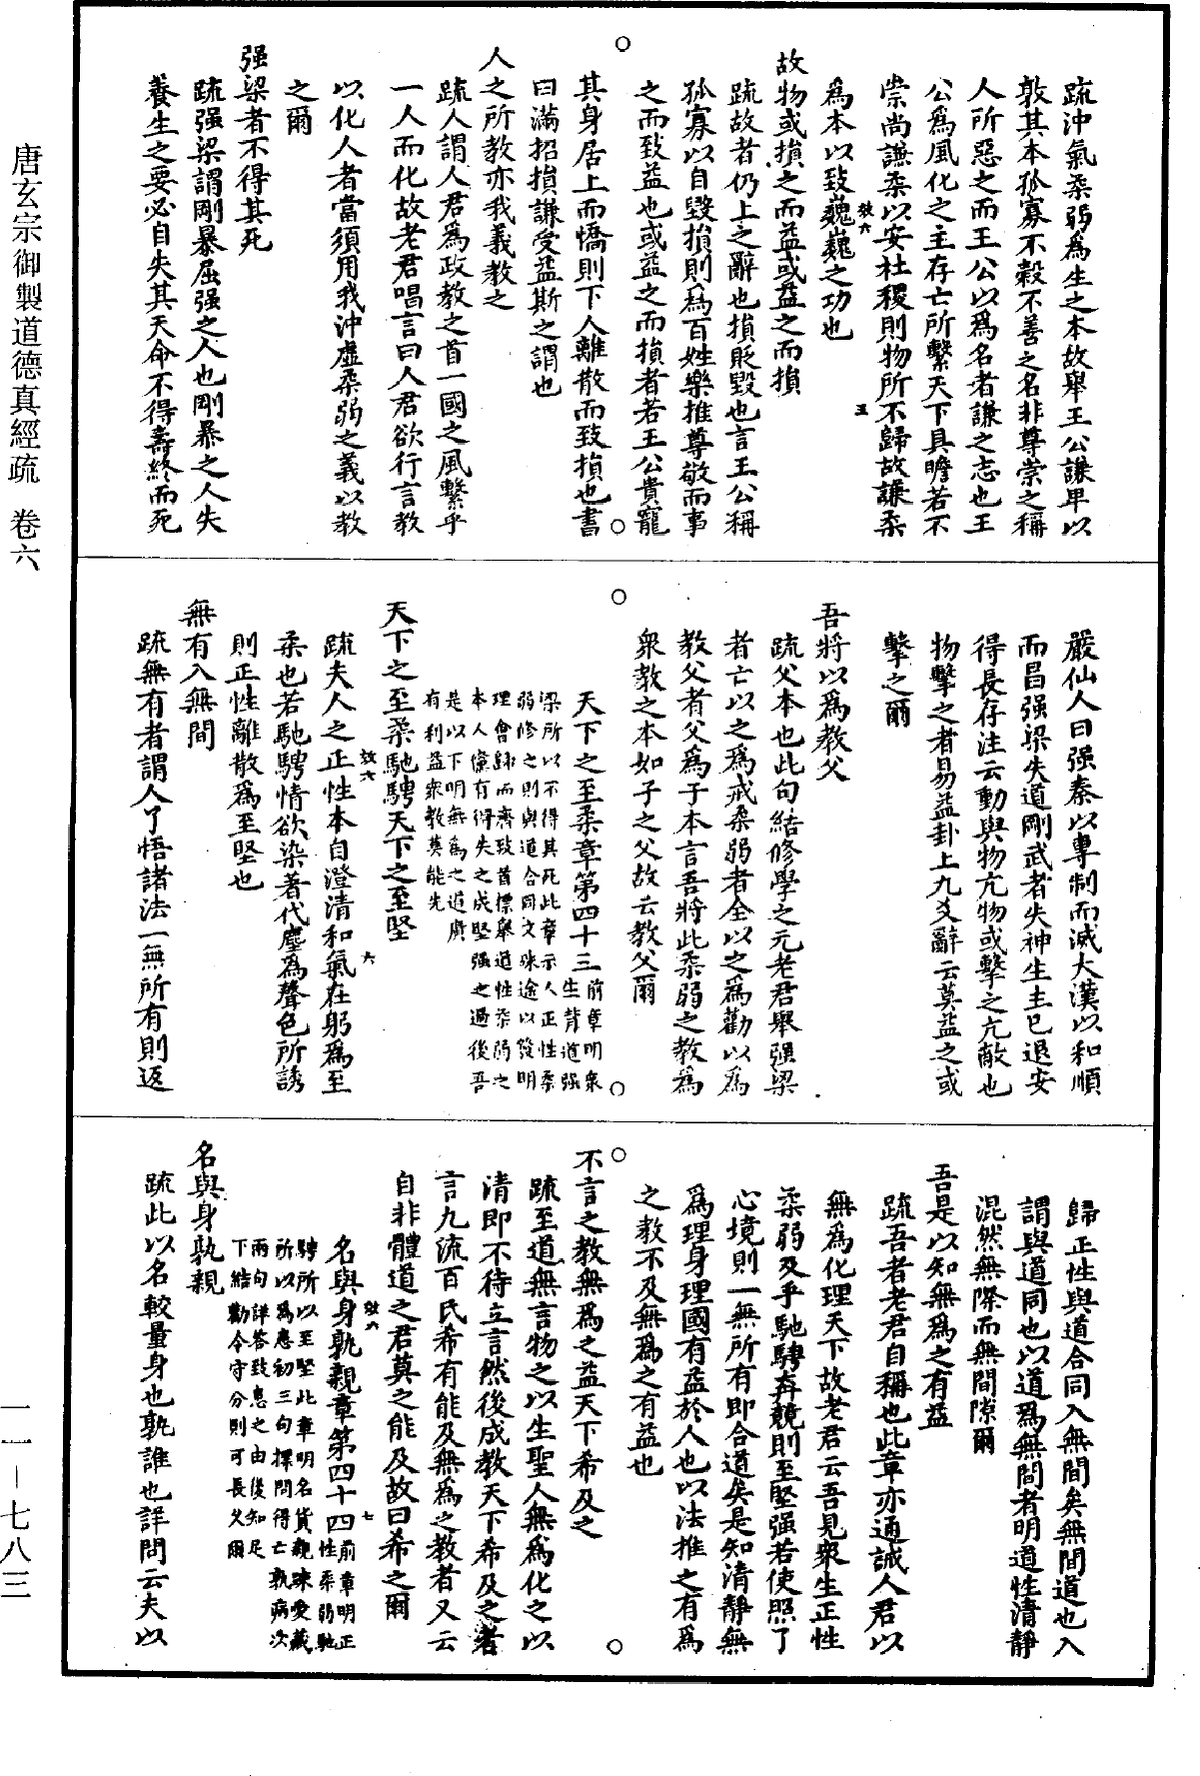 疏沖氣柔弱爲生之本故舉王公謙卑以
敦其本孤寡不穀不善之名非尊崇之稱
人所惡之而王公以爲名者謙之志也王
公爲風化之主存亡所繫天下具瞻若不
崇尚謙柔以安社稷則物所不歸故謙柔
爲本以致巍巍之功也
效六
五
故物或損之而益或益之而損
疏故者仍上之辭也損貶毀也言王公稱
孤寡以自毀損則爲百姓樂推尊敬而事
之而致益也或益之而損者若王公貴寵
其身居上而憍則下人離散而致損也書
曰滿招損謙受益斯之謂也
人之所教亦我義教之
疏人謂人君爲政教之首一國之風繫乎
一人而化故老君唱言曰人君欲行言教
以化人者當須用我沖虛柔弱之義以教
之爾
强梁者不得其死
疏强梁謂剛暴屈强之人也剛暴之人失
養生之要必自失其天命不得壽終而死
嚴仙人曰强秦以專制而滅大漢以和順
而昌强梁失道剛武者失神生主已退安
得長存注云動與物亢物或擊之亢敵也
物擊之者易益卦上九爻辭云莫益之或
擊之爾
吾將以爲教父
疏父本也此句結修學之元老君舉强梁
者亡以之爲戒柔弱者全以之爲勸以爲
教父者父爲子本言吾將此柔弱之教爲
衆教之本如子之父故云教父爾
天下之至柔章第四十三
前章明衆生背道强
梁所以不得其死此章示人正性柔
弱修之則與道合同文殊途以發明
理會歸而齊致首標舉道性柔弱之
本人儻有得失之成堅强之過後吾
是以下明無爲之道廣
有利益衆教莫能先
天下之至柔馳騁天下之至堅
疏夫人之正性本自澄清和氣在躬爲至
效六
六
柔也若馳騁情欲染著代塵爲聲色所誘
則正性離散爲至堅也
無有入無間
疏無有者謂人了悟諸法一無所有則返
歸正性與道合同入無間矣無間道也入
謂與道同也以道爲無間者明道性清靜
混然無際而無間隙爾
吾是以知無爲之有益
疏吾者老君自稱也此章亦通誡人君以
無爲化理天下故老君云吾見衆生正性
柔弱及乎馳騁奔競則至堅强若使照了
心境則一無所有即合道矣是知清靜無
爲理身理國有益於人也以法推之有爲
之教不及無爲之有益也
不言之教無爲之益天下希及之
疏至道無言物之以生聖人無爲化之以
清即不待立言然後成教天下希及之者
言九流百氏希有能及無爲之教者又云
自非體道之君莫之能及故曰希之爾
效六
七
名與身孰親章第四十四
前章明正性柔弱馳
騁所以至堅此章明名貨親踈愛藏
所以爲患初三句標問得亡孰病次
兩句詳答致患之由後知足
下結勸令守分則可長久爾
名與身孰親
疏此以名較量身也孰誰也詳問云夫以
唐玄宗御製道德真經疏 卷六
一一－七八三